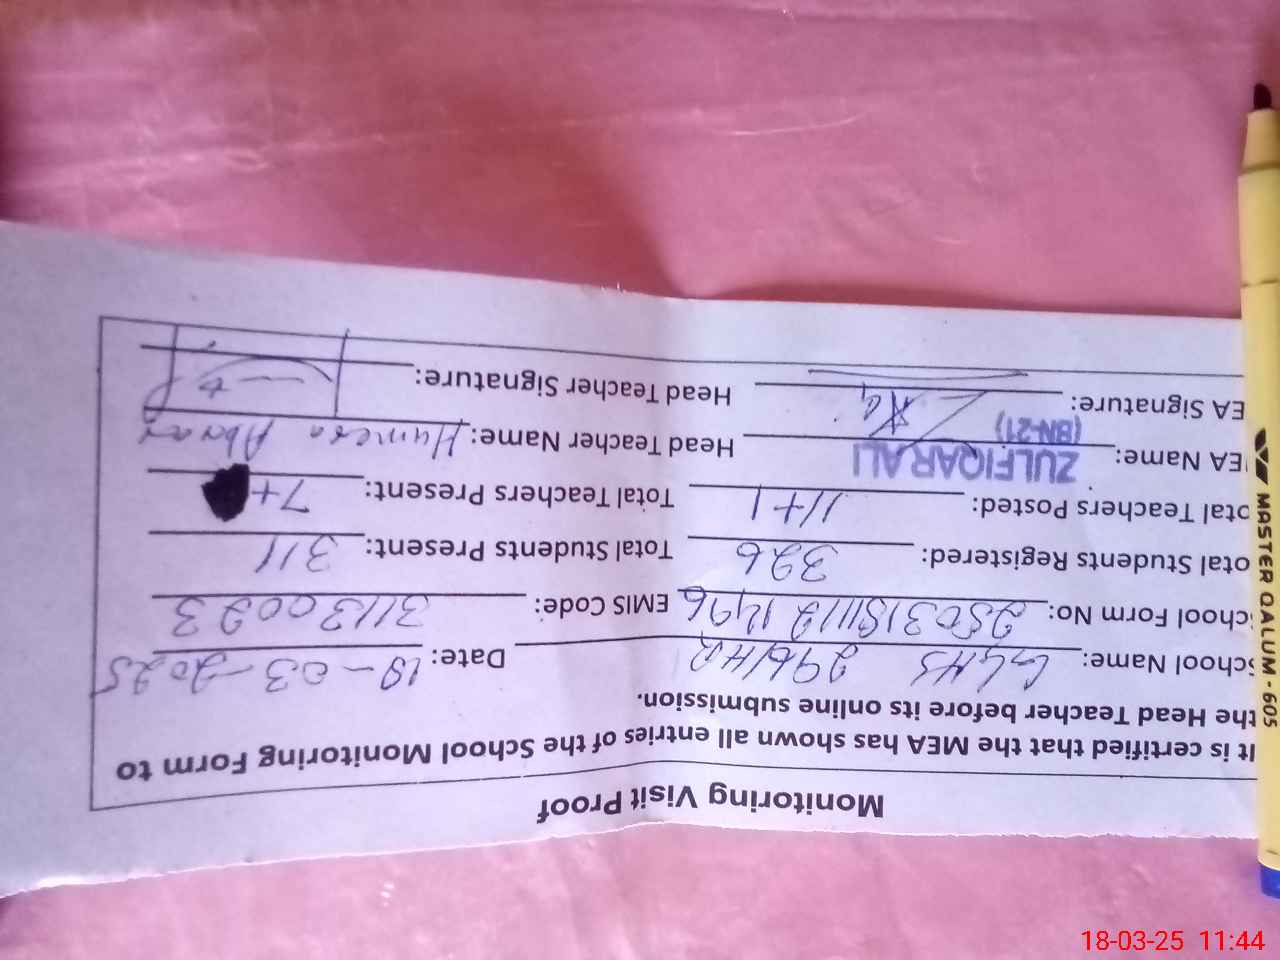 Monitoring Visit Proof
It is certified that the MEA has shown all entries of the School Monitoring Form to
the Head Teacher before its online submission.
School Name: GGHS 296/HR Date: 18-03-2025
School Form No: EMIS Code: 31130023
otal Students Registered: 326 Total Students Present: 311
otal Teachers Posted: 11+1 Total Teachers Present: 7+
EA Name: ZULFIQAR ALI (BN-21) Head Teacher Name: Humera Abrar
EA Signature: Head Teacher Signature:
MASTER QALUM - 605
18-03-25 11:44